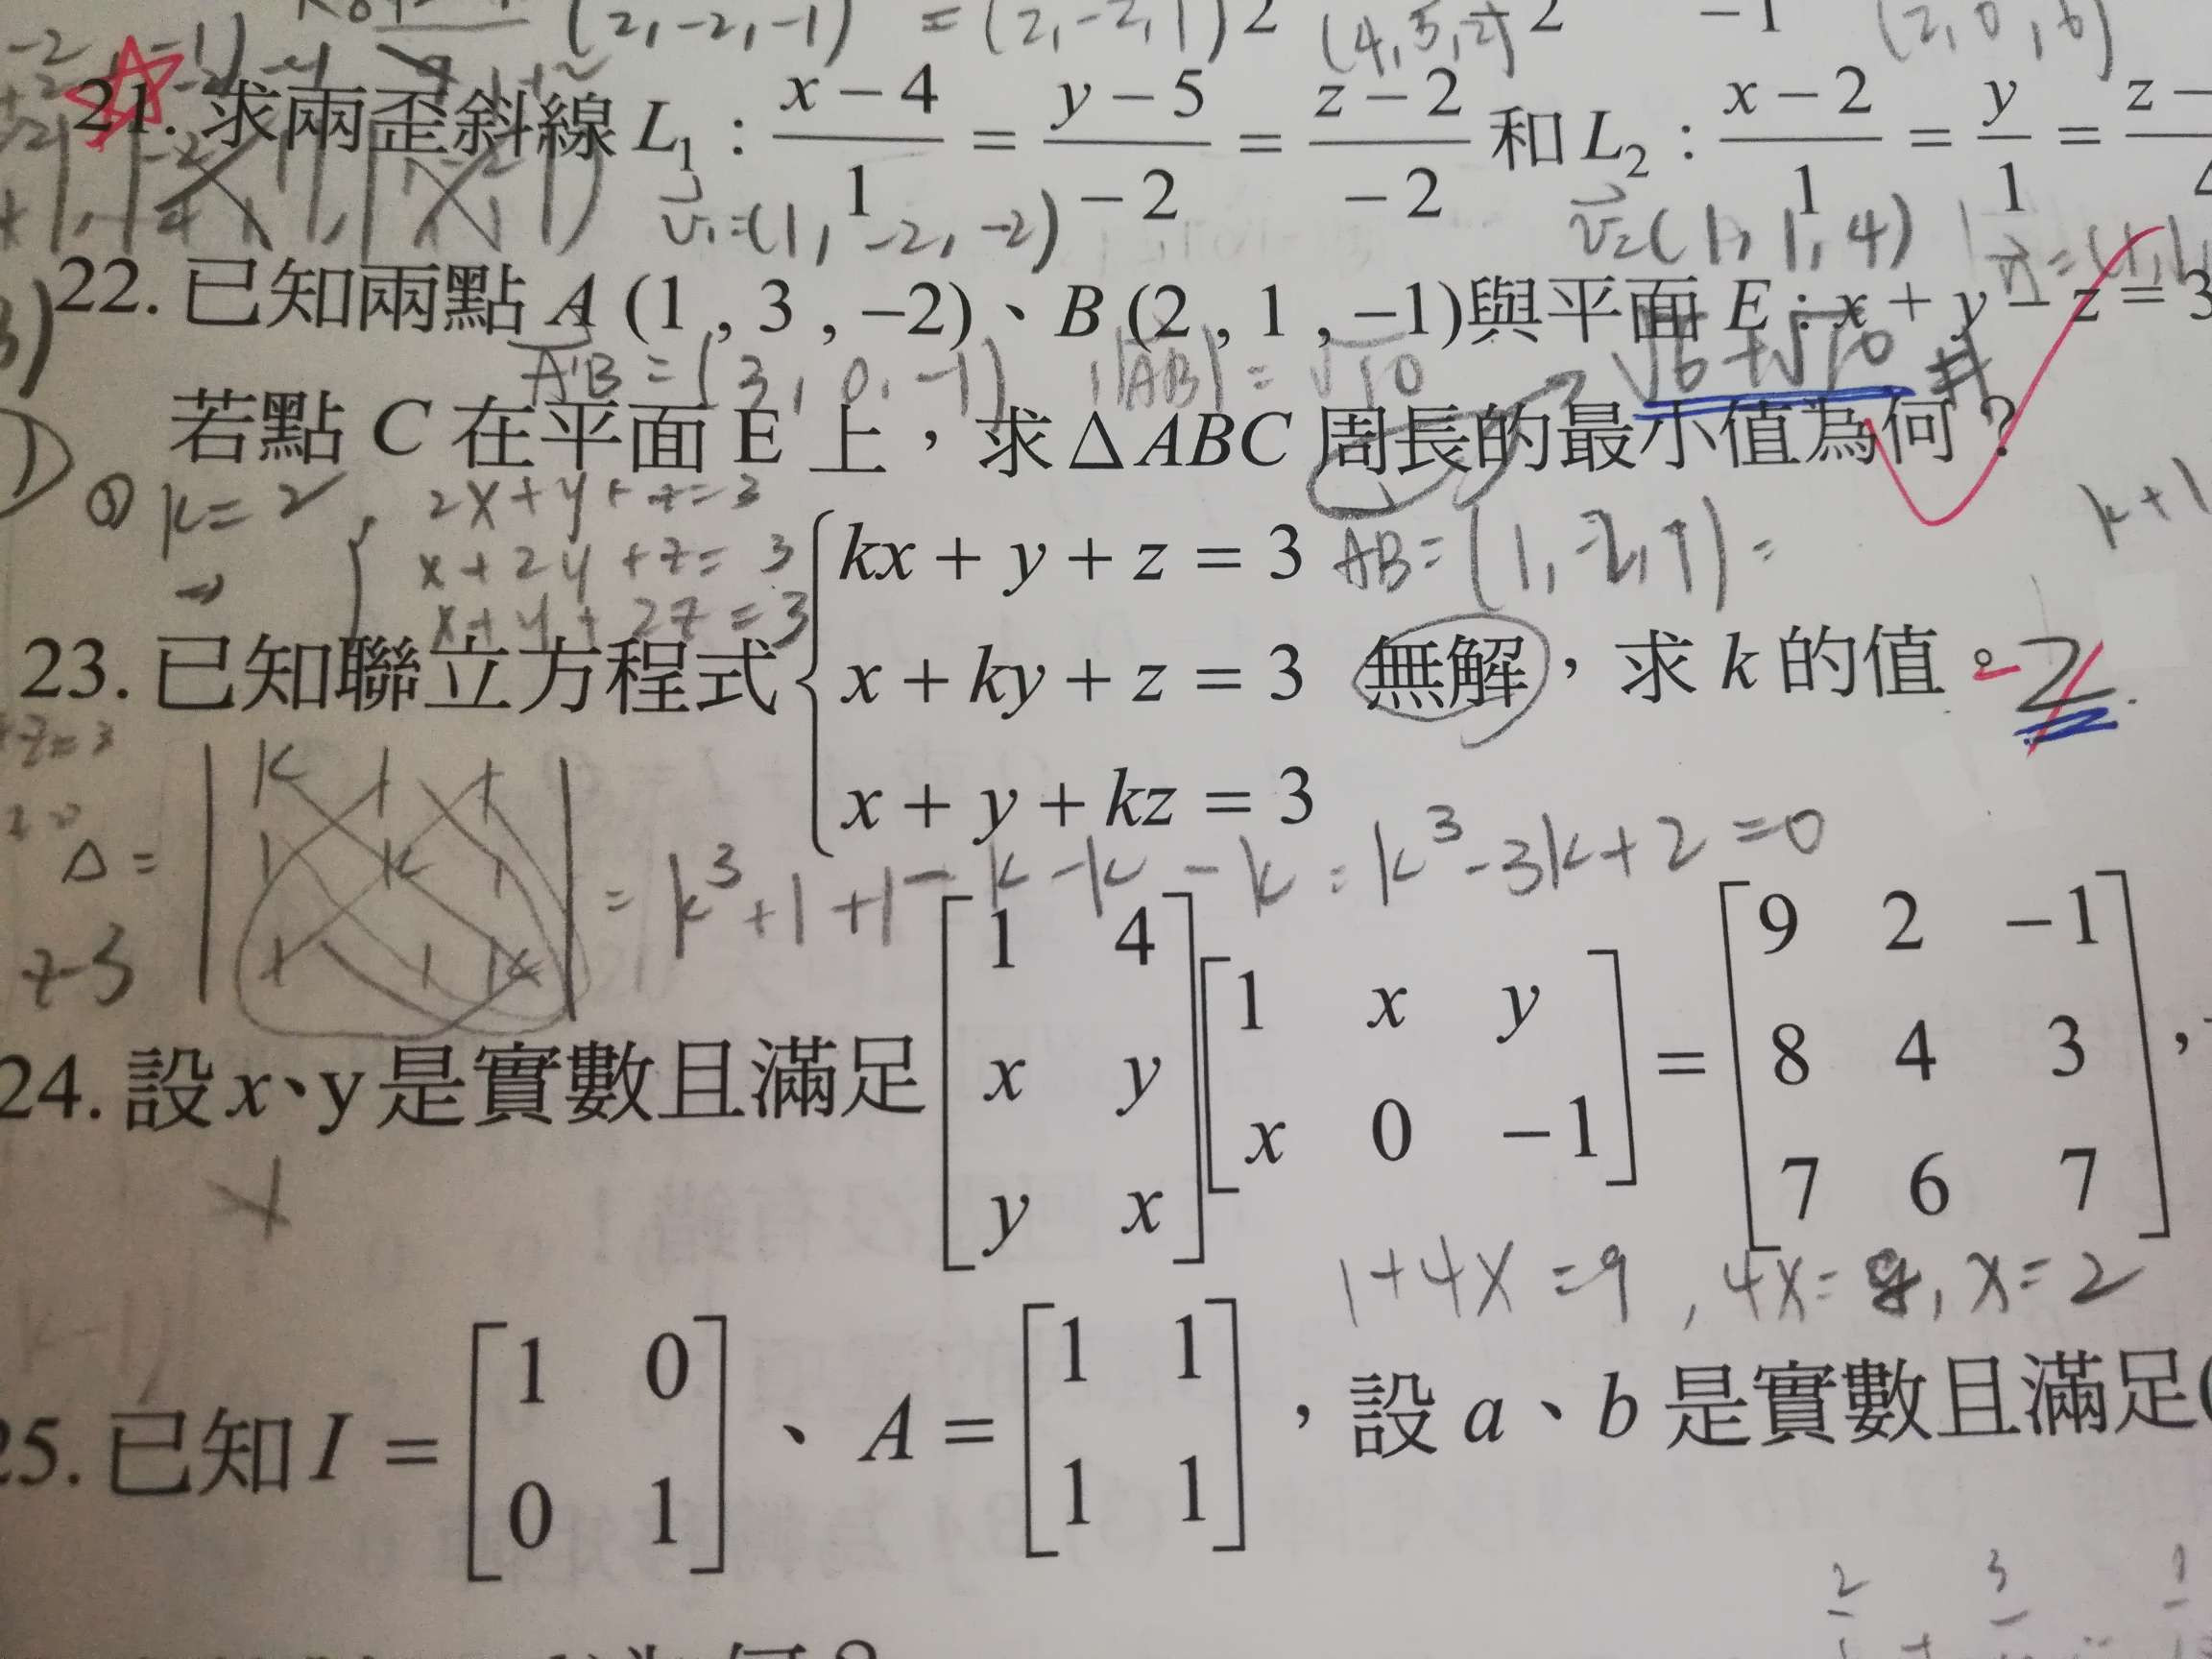 (2,-2,-1) = (2,-2,1) 2 (4,5,2) -2 -1 (2,0,6)
21. 求兩歪斜線 L₁ : (x-4)/1 = (y-5)/-2 = (z-2)/-2 和 L₂ : (x-2)/1 = y/1 =
v₁=(1,-2,-2) v₂=(1,1,4)
22. 已知兩點 A (1 , 3 , -2)、B (2 , 1 , -1)與平面 E : x + y - z = 3
A'B = (3, 0, -1) |AB| = √10 √6+√10 #
若點 C 在平面 E 上,求 Δ ABC 周長的最小值為何?
k=2 2x+y+z=3
→ x+2y+z=3 AB=(1,-2,1)= k+1
x+y+2z=3
23. 已知聯立方程式 { kx + y + z = 3
x + ky + z = 3 無解,求 k 的值。-2
x + y + kz = 3
Δ = | k 1 1
1 k 1
1 1 k | = k³+1+1-k-k-k = k³-3k+2=0
z-3
24. 設 x、y 是實數且滿足 [1 4
x y
y x] [1 x y
x 0 -1] = [9 2 -1
8 4 3
7 6 7],
1+4x=9, 4x=8, x=2
25. 已知 I = [1 0
0 1]、A = [1 1
1 1],設 a、b 是實數且滿足(